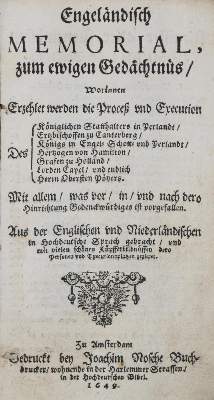 Engeländisch
MEMORIAL,
zum ewigen Gedächtnüs/
Worinnen
Erzehlet werden die Proceß vnd Execution
Des
Königlichen Statthalters in Yerlandt/
Ertzbischoffen zu Cantelberg/
Königs in Engel- Schott- vnd Yerlandt/
Hertzogen von Hamilton/
Grafen zu Holland/
Lorden Capel/ vnd endlich
Herrn Obersten Poyers.
Mit allem/ was vor/ in/ vnd nach dero
Hinrichtung Gedenckwürdiges ist vorgefallen.
Aus der Englischen vnd Niederländischen
in Hochdeutsche Sprach gebracht/ vnd
mit vielen schönen Kupfferbildnüssen dero
Personen vnd Executionsplätzen gezieret.
Zu Amsterdam
Gedruckt bey Joachim Nosche Buch-
drucker/ wohnende in der Harlemmer Strassen/
in der Hochdeutschen Bibel.
1649.